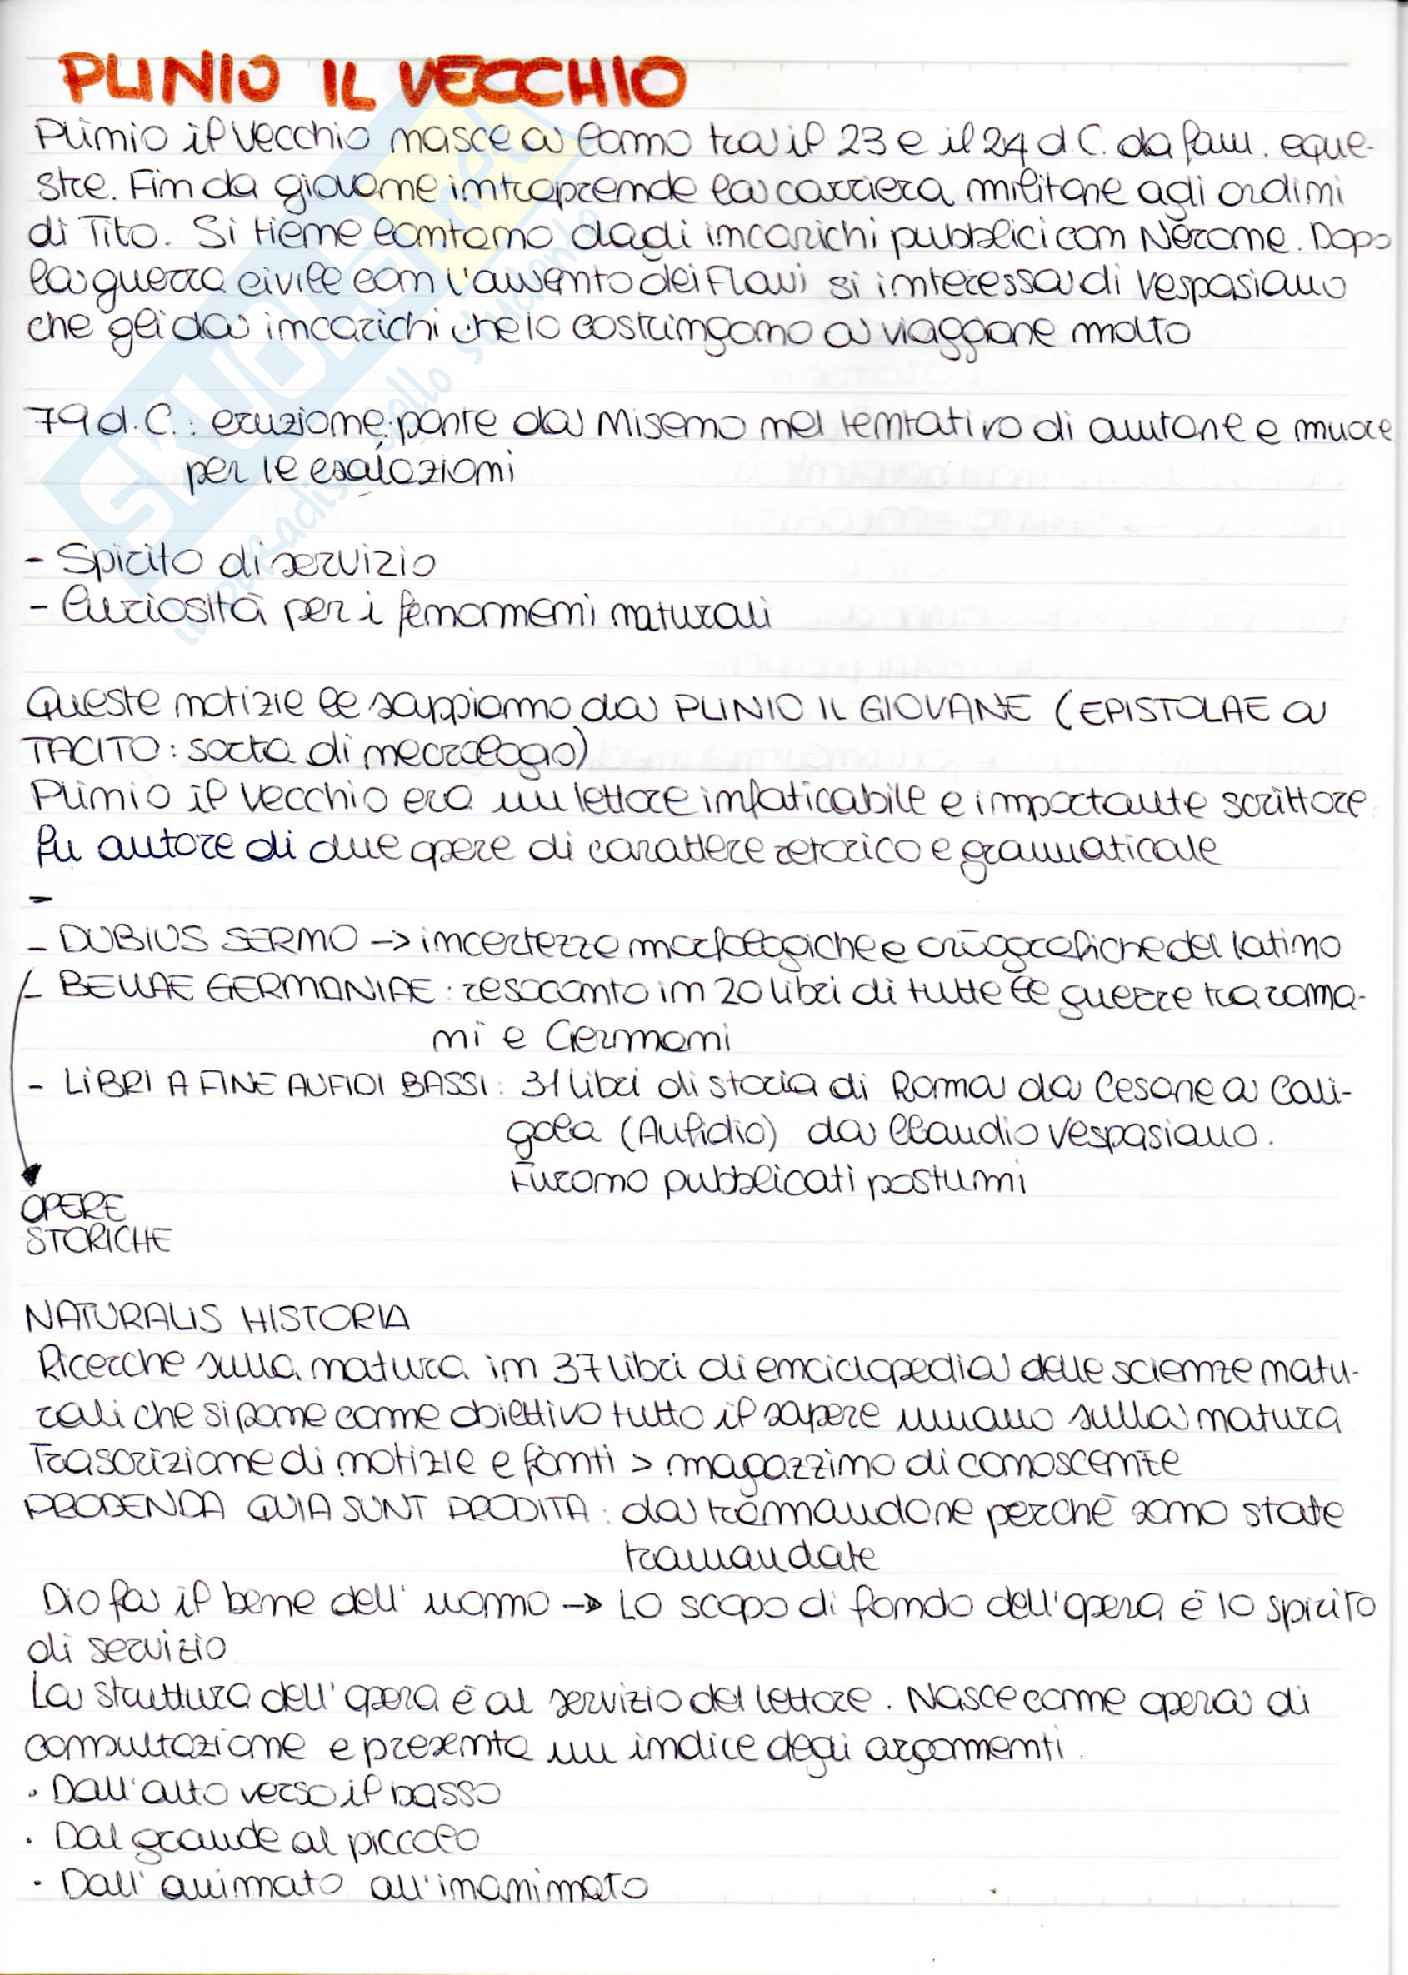 PLINIO IL VECCHIO
Plinio il Vecchio nasce a Como tra il 23 e il 24 d C. da fam. eque-
stre. Fin da giovane intraprende la carriera militare agli ordini
di Tito. Si tiene lontano dagli incarichi pubblici con Nerone. Dopo
la guerra civile con l'avvento dei Flavi si interessa di Vespasiano
che gli da incarichi che lo costringono a viaggiare molto
79 d.C.: eruzione; parte da Miseno nel tentativo di aiutare e muore
per le esalazioni
- Spirito di servizio
- Curiosità per i fenonmeni naturali
Queste notizie le sappiamo da PLINIO IL GIOVANE (EPISTOLAE a
TACITO: sorta di necrologio)
Plinio il Vecchio era un lettore infaticabile e importante scrittore
Fu autore di due opere di carattere retorico e grammaticale
-
- DUBIUS SERMO -> incertezze morfologiche e ortografiche del latino
- BELLAE GERMANIAE: resoconto in 20 libri di tutte le guerre tra roma-
ni e Germani
- LIBRI A FINE AUFIDI BASSI: 31 libri di storia di Roma da Cesare a Cali-
gola (Aufidio) da Claudio Vespasiano.
Furono pubblicati postumi
OPERE
STORICHE
NATURALIS HISTORIA
Ricerche sulla natura in 37 libri di enciclopedia delle scienze natu-
rali che si pone come obiettivo tutto il sapere umano sulla natura
Trascrizione di notizie e fonti > magazzino di conoscenze
PRODENDA QUIA SUNT PRODITA: da tramandare perchè sono state
tramandate
Dio fa il bene dell' uomo -> Lo scopo di fondo dell'opera è lo spirito
di servizio
La struttura dell'opera è al servizio del lettore. Nasce come opera di
consultazione e presenta un indice degli argomenti.
· Dall'alto verso il basso
· Dal grande al piccolo
· Dall' animato all'inanimato